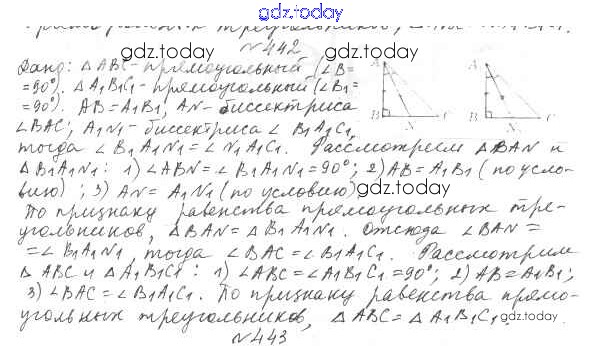 gdz.today
треугольников,
gdz.today gdz.today
№442
Дано: △ABC - прямоугольный (∠B=
=90°). △A1B1C1 - прямоугольный (∠B1=
=90°). AB=A1B1, AN - биссектриса
∠BAC, A1N1 - биссектриса ∠B1A1C1,
тогда ∠B1A1N1 = ∠N1A1C1. Рассмотрим △BAN и
△B1A1N1: 1) ∠ABN = ∠B1A1N1 = 90°; 2) AB = A1B1 (по усло-
вию) ; 3) AN = A1N1 (по условию)
gdz.today
По признаку равенства прямоугольных тре-
угольников, △BAN = △B1A1N1. Отсюда ∠BAN =
= ∠B1A1N1, тогда ∠BAC = ∠B1A1C1. Рассмотрим
△ABC и △A1B1C1: 1) ∠ABC = ∠A1B1C1 = 90°; 2) AB = A1B1;
3) ∠BAC = ∠B1A1C1. По признаку равенства прямо-
угольных треугольников, △ABC = △A1B1C1.
gdz.today gdz.today
№443
A
B
N
C
A
B
N
C